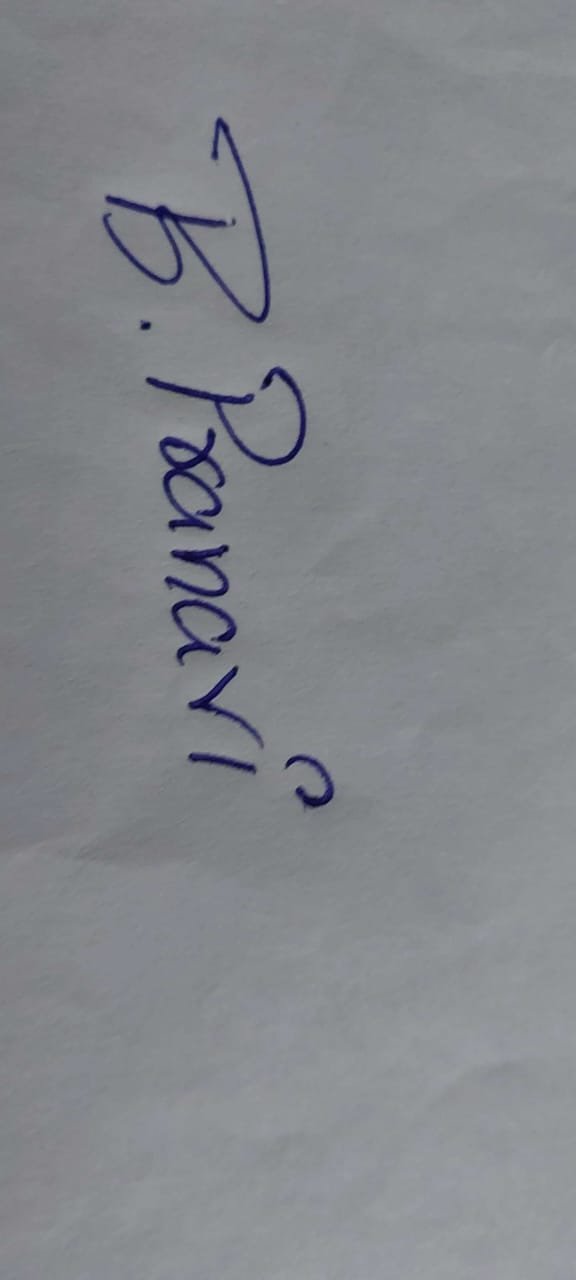 B. Pranavi